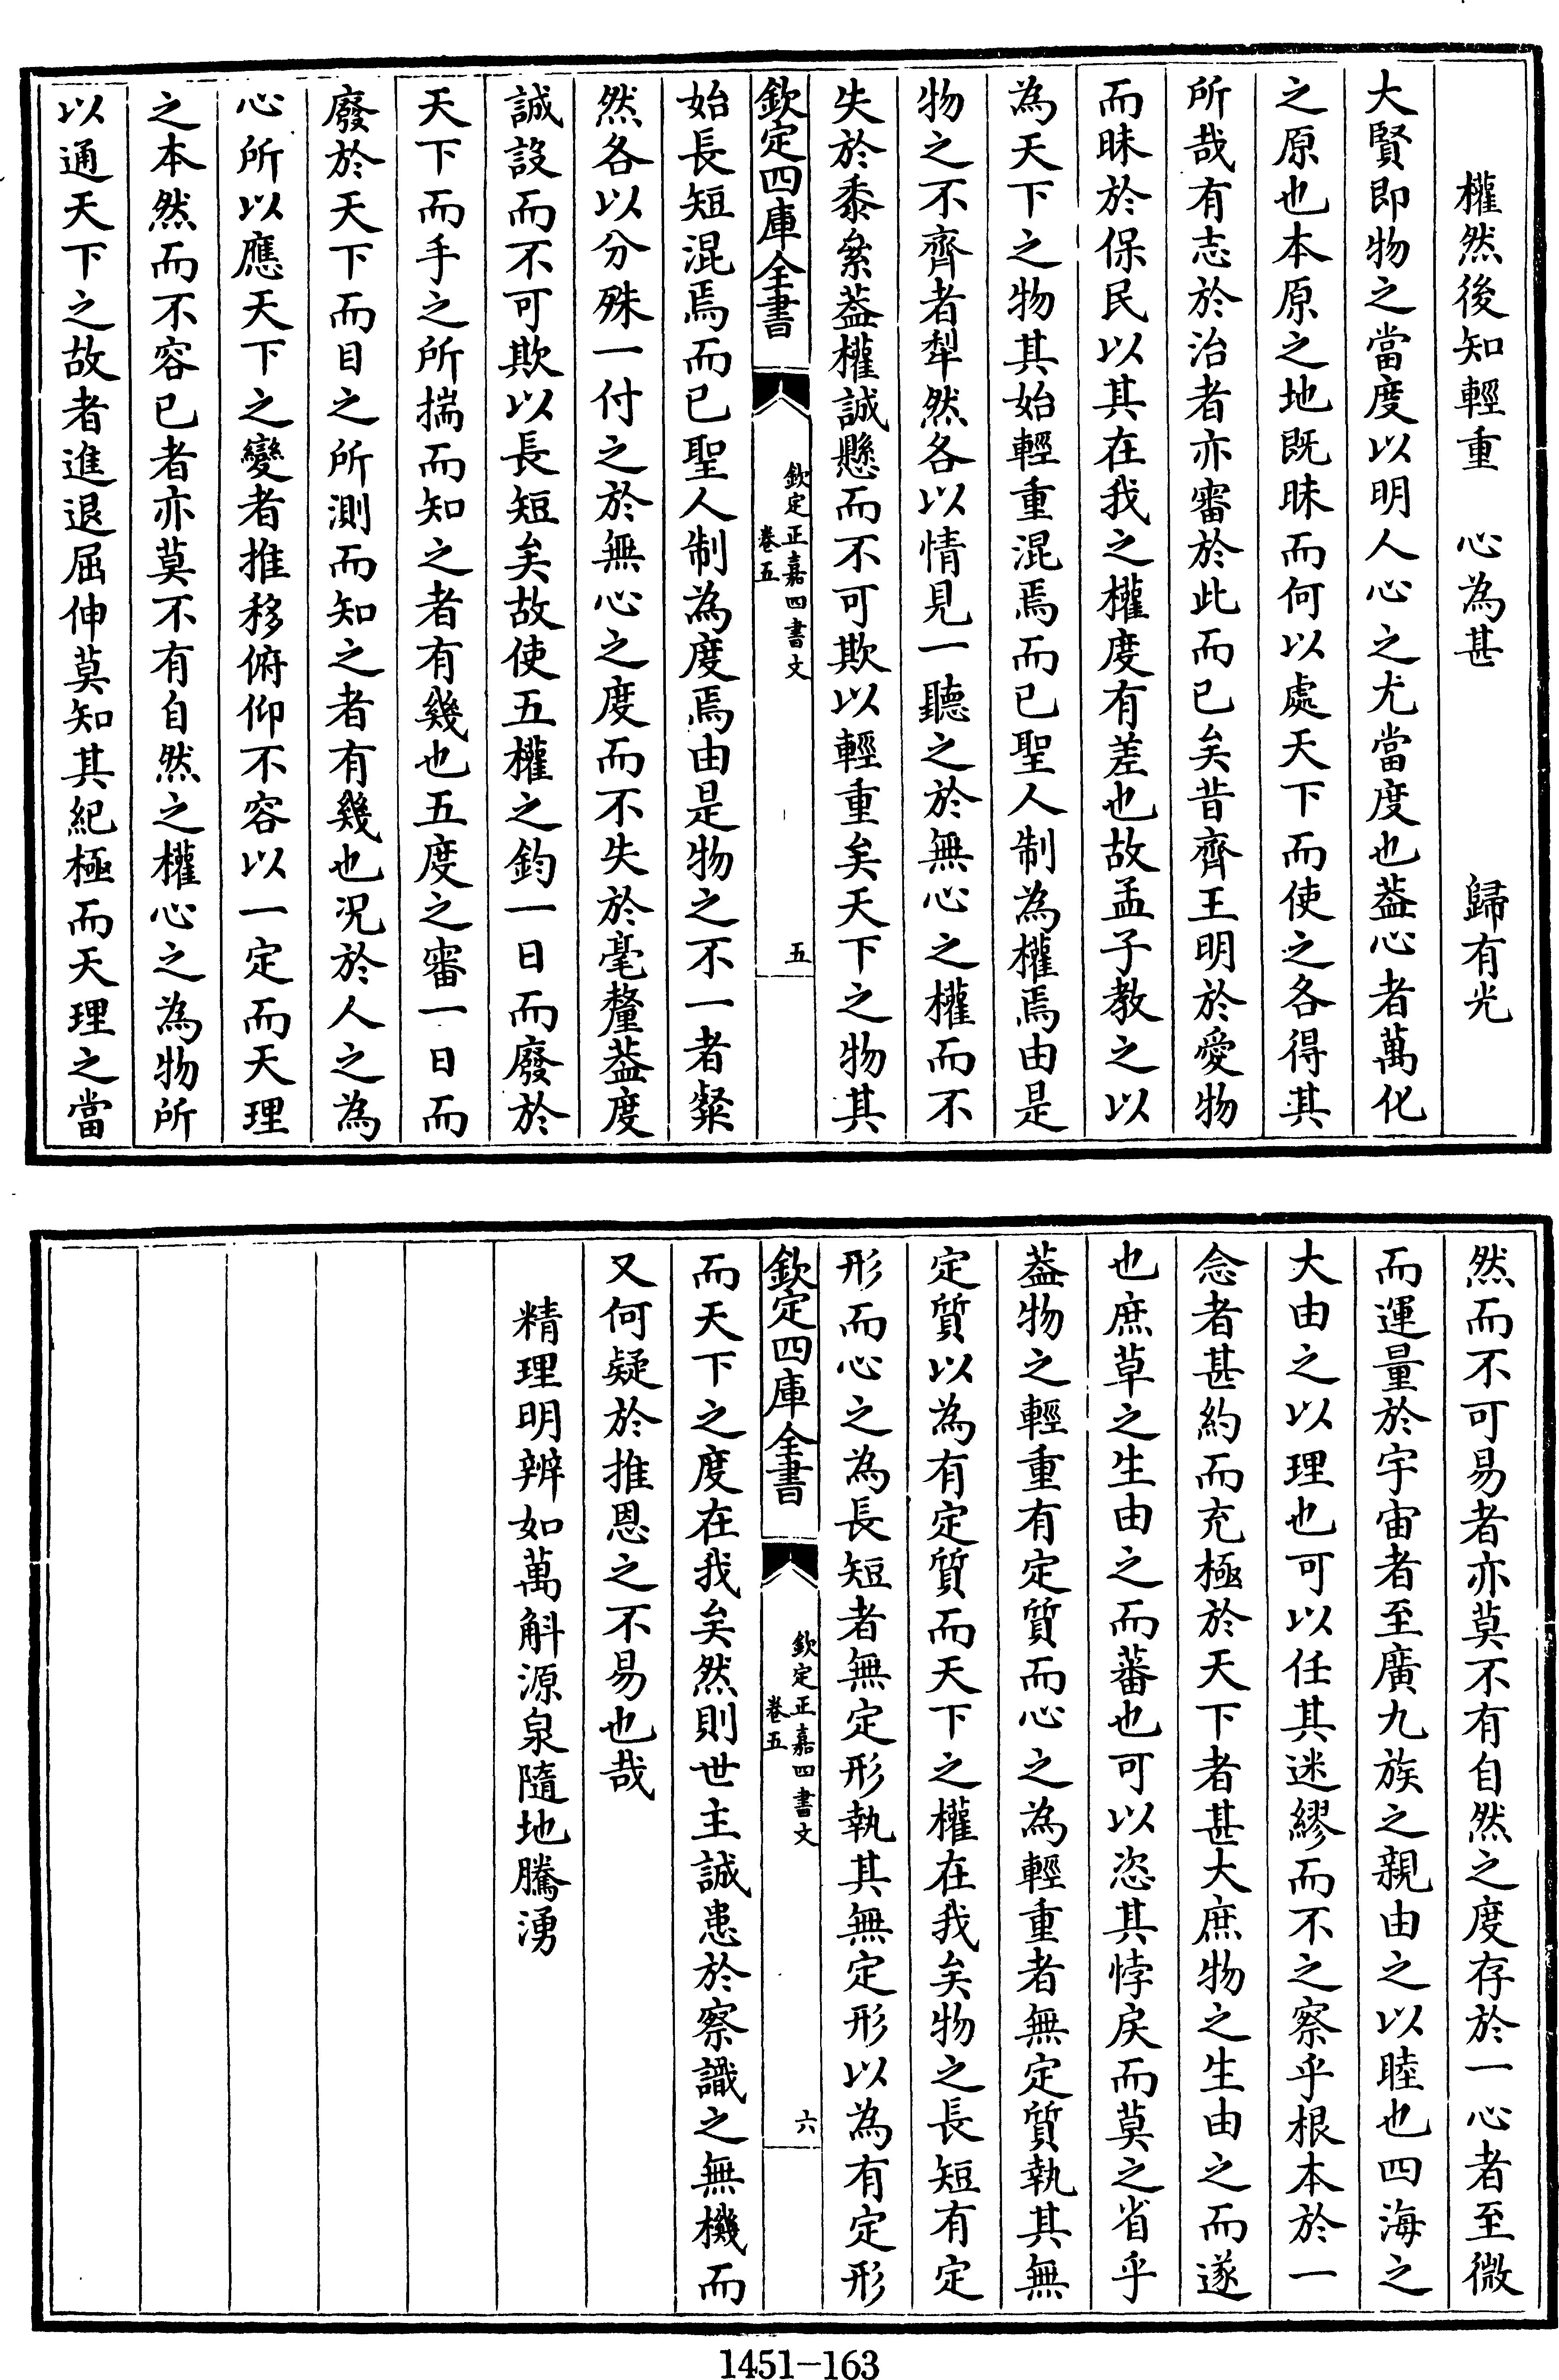 權然後知輕重　心為甚　歸有光
大賢即物之當度以明人心之尤當度也葢心者萬化
之原也本原之地既昧而何以處天下而使之各得其
所哉有志於治者亦審於此而已矣昔齊王明於愛物
而昧於保民以其在我之權度有差也故孟子教之以
為天下之物其始輕重混焉而已聖人制為權焉由是
物之不齊者犁然各以情見一聽之於無心之權而不
失於黍絫葢權誠懸而不可欺以輕重矣天下之物其
欽定四庫全書
欽定正嘉四書文
卷五
五
始長短混焉而已聖人制為度焉由是物之不一者粲
然各以分殊一付之於無心之度而不失於毫釐葢度
誠設而不可欺以長短矣故使五權之鈞一日而廢於
天下而手之所揣而知之者有幾也五度之審一日而
廢於天下而目之所測而知之者有幾也况於人之為
心所以應天下之變者推移俯仰不容以一定而天理
之本然而不容已者亦莫不有自然之權心之為物所
以通天下之故者進退屈伸莫知其紀極而天理之當
然而不可易者亦莫不有自然之度存於一心者至微
而運量於宇宙者至廣九族之親由之以睦也四海之
大由之以理也可以任其迷繆而不之察乎根本於一
念者甚約而充極於天下者甚大庶物之生由之而遂
也庶草之生由之而蕃也可以恣其悖戾而莫之省乎
葢物之輕重有定質而心之為輕重者無定質執其無
定質以為有定質而天下之權在我矣物之長短有定
形而心之為長短者無定形執其無定形以為有定形
欽定四庫全書
欽定正嘉四書文
卷五
六
而天下之度在我矣然則世主誠患於察識之無機而
又何疑於推恩之不易也哉
精理明辨如萬斛源泉隨地騰湧
1451-163